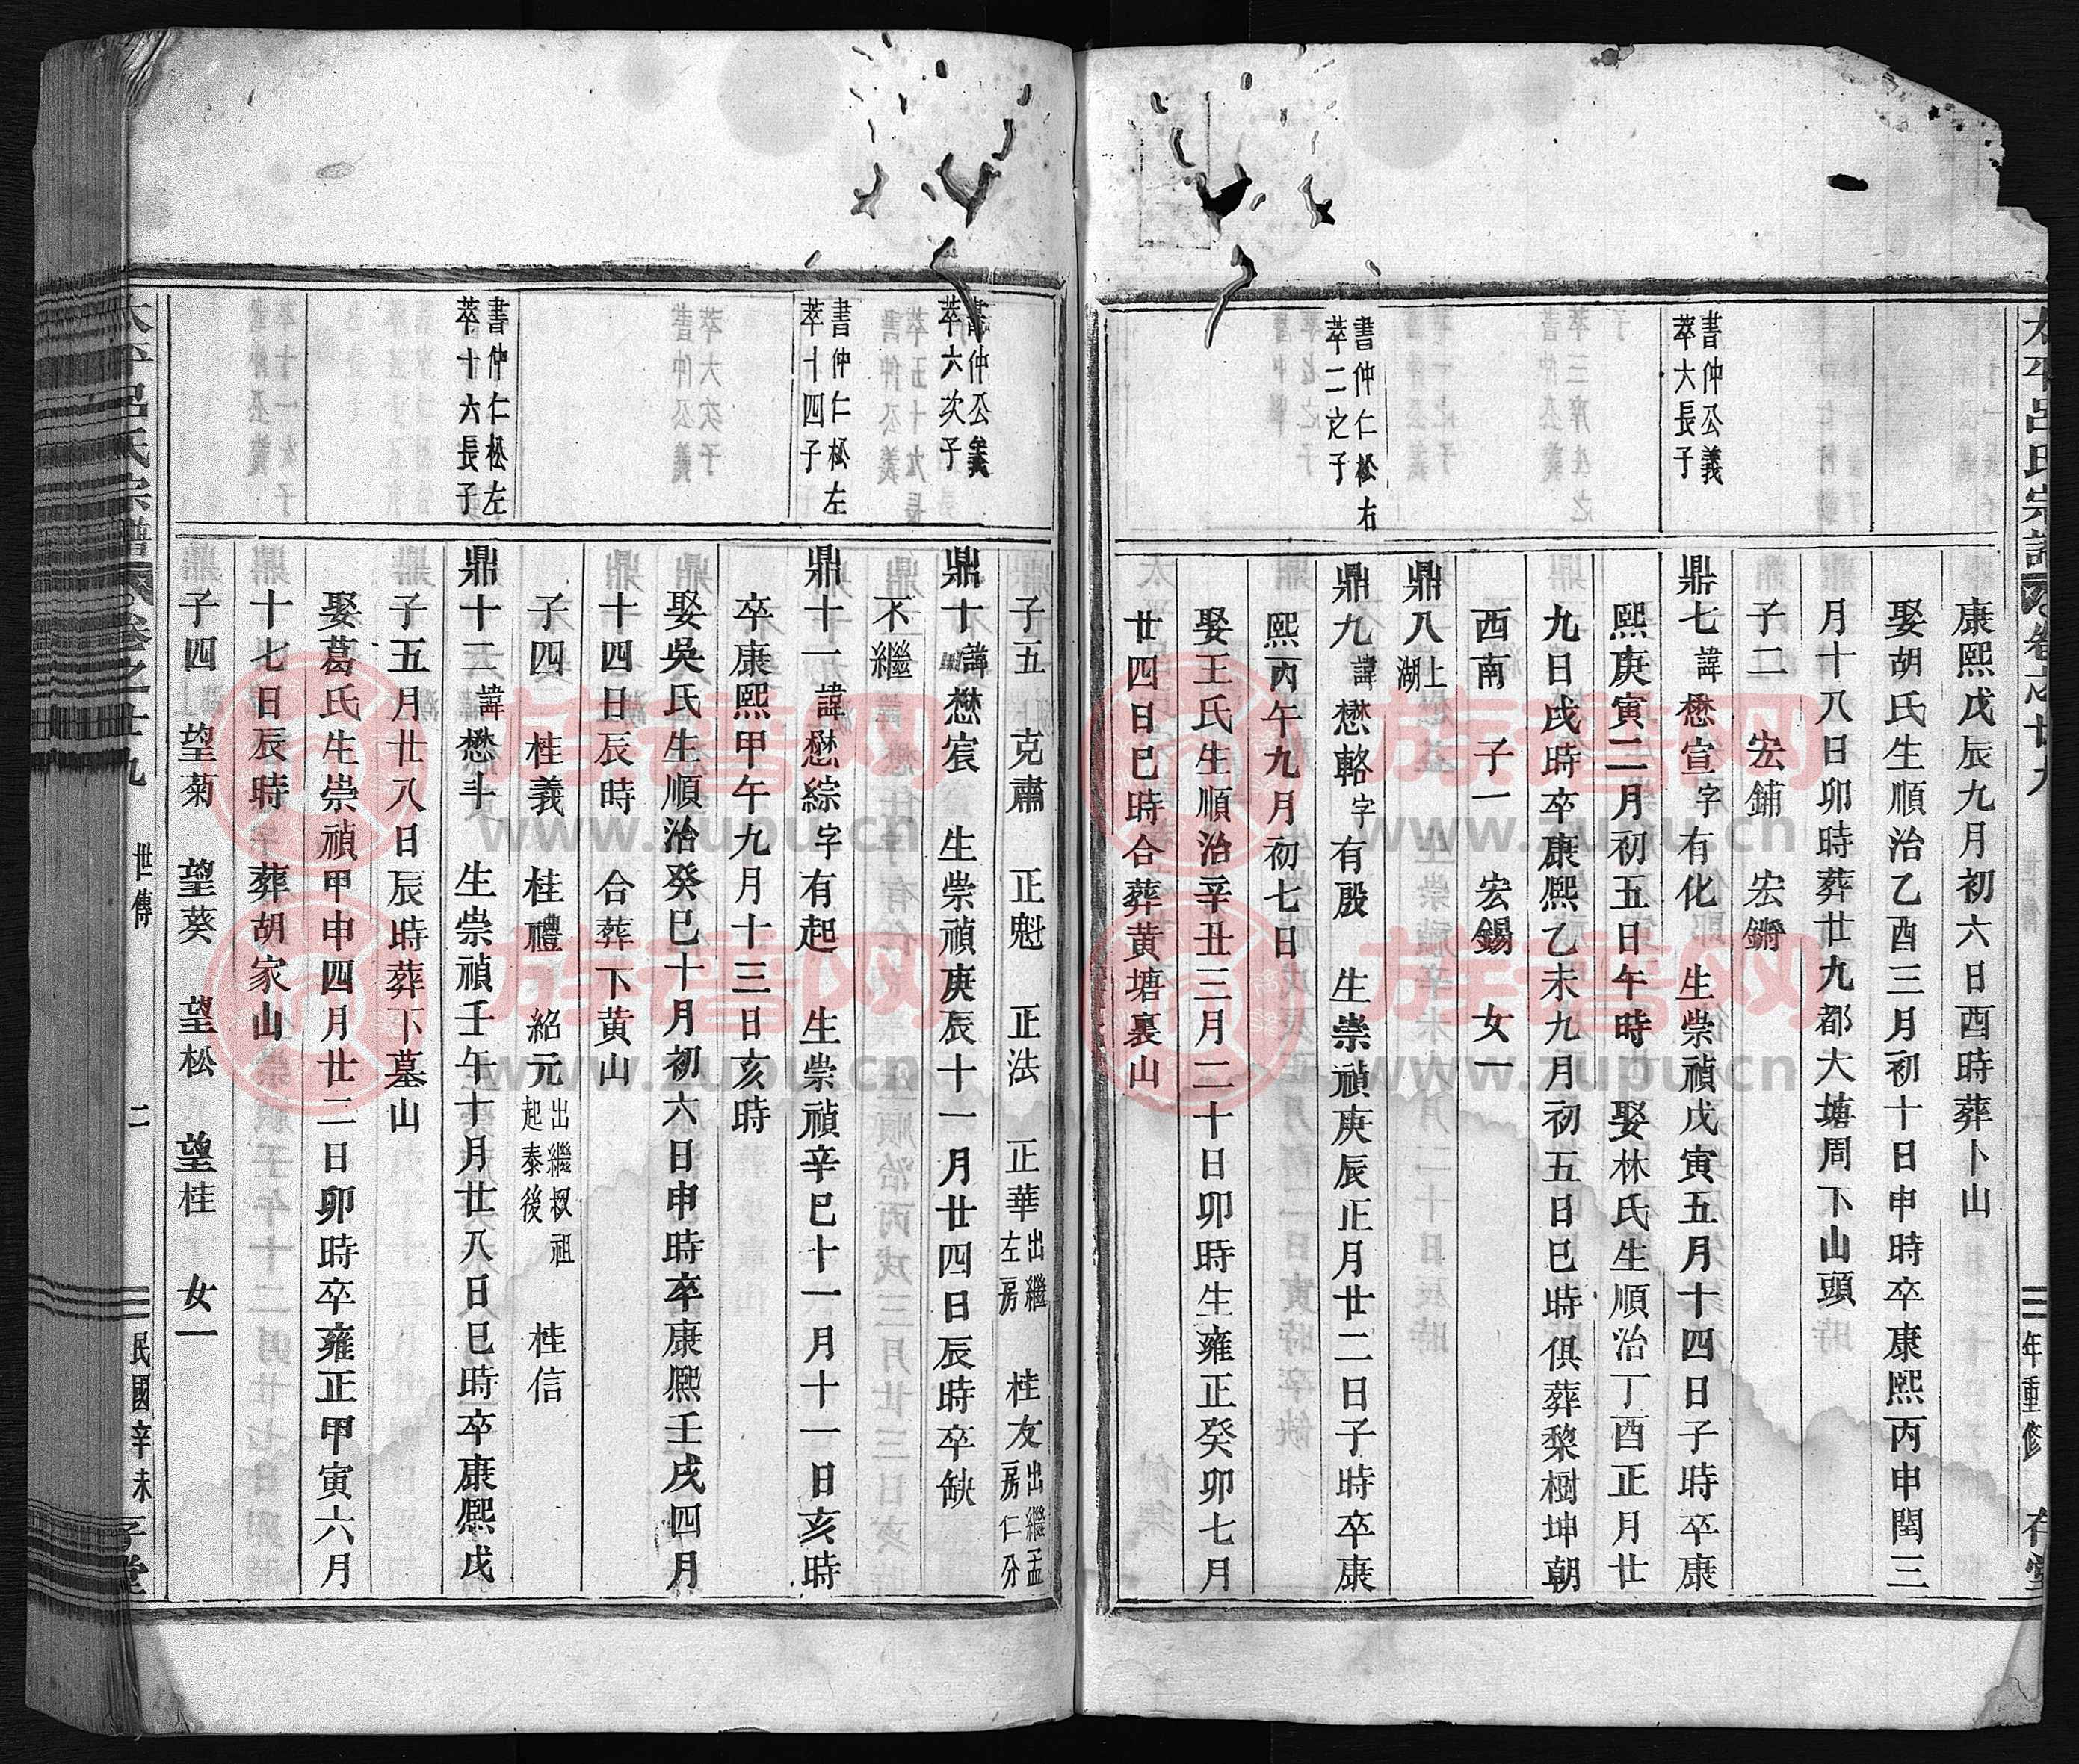 太平呂氏宗譜 卷之廿九
年重修
康熙戊辰九月初六日酉時葬卜山
娶胡氏生順治乙酉三月初十日申時卒康熙丙申閏三
月十八日卯時葬廿九都大塘周下山頭
子二 宏鋪 宏鏘
書仲公義
萃大長子
鼎七諱懋宣字有化 生崇禎戊寅五月十四日子時卒康
熙庚寅二月初五日午時 娶林氏生順治丁酉正月廿
九日戌時卒康熙乙未九月初五日巳時俱葬黎樹坤朝
西南 子一 宏錫 女一
鼎八上湖
書仲仁松右
萃二之子
鼎九諱懋輅字有殷 生崇禎庚辰正月廿二日子時卒康
熙丙午九月初七日
娶王氏生順治辛丑三月二十日卯時生雍正癸卯七月
廿四日巳時合葬黄塘裏山
子五 克肅 正魁 正法 正華出繼左房 桂友出繼孟房仁分
書仲公義
萃六次子
鼎十諱懋宸 生崇禎庚辰十一月廿四日辰時卒缺
不繼
書仲仁松左
萃十四子
鼎十一諱懋綜字有起 生崇禎辛巳十一月十一日亥時
卒康熙甲午九月十三日亥時
娶吳氏生順治癸巳十月初六日申時卒康熙壬戌四月
十四日辰時 合葬下黄山
子四 桂義 桂禮 紹元出繼叔祖起泰後 桂信
書仲仁松左
萃十六長子
鼎十二諱懋斗 生崇禎壬午十月廿八日巳時卒康熙戊
子五月廿八日辰時葬下墓山
娶葛氏生崇禎甲申四月廿二日卯時卒雍正甲寅六月
十七日辰時 葬胡家山
子四 望菊 望葵 望松 望桂 女一
太平呂氏宗譜 卷之廿九 世傳 二 民國辛未
族譜网
www.zupu.cn
族譜网
www.zupu.cn
族譜网
www.zupu.cn
族譜网
www.zupu.cn